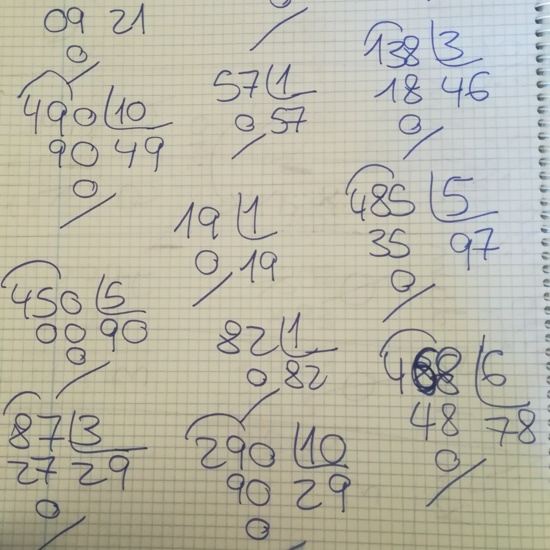 09 21
0
490 10
90 49
0
450 5
00 90
0
87 3
27 29
0
57 1
0 57
19 1
0 19
82 1
0 82
290 10
90 29
0
138 3
18 46
0
485 5
35 97
0
468 6
48 78
0